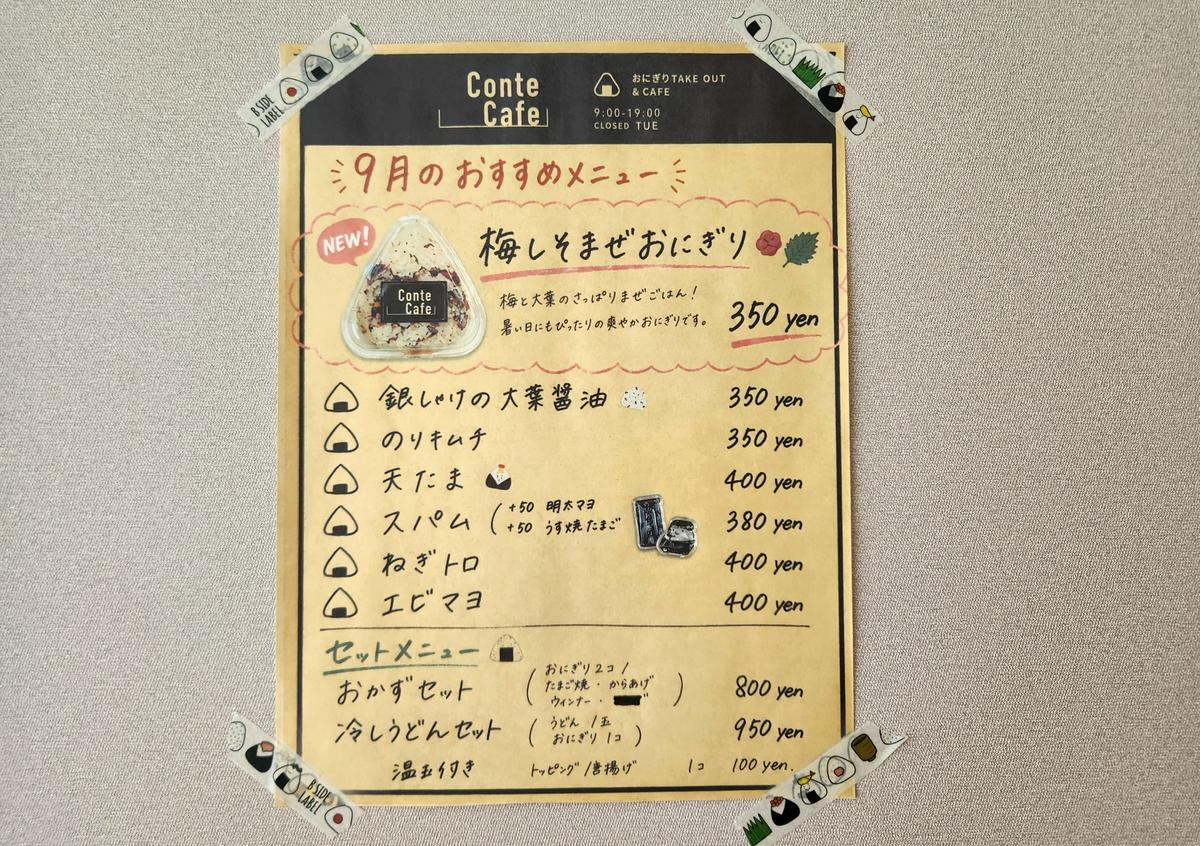 B-SIDE LABEL
LABEL
Conte Cafe
おにぎりTAKE OUT
& CAFE
9:00-19:00
CLOSED TUE
9月のおすすめメニュー
NEW!
梅しそまぜおにぎり
梅と大葉のさっぱりまぜごはん!
暑い日にもぴったりの爽やかおにぎりです。
350 yen
Conte Cafe
銀しゃけの大葉醤油 350 yen
のりキムチ 350 yen
天たま 400 yen
スパム (+50 明太マヨ 380 yen
+50 うす焼たまご
ねぎトロ 400 yen
エビマヨ 400 yen
セットメニュー
おかずセット (おにぎり2コ / たまご焼・からあげ ウィンナー・) 800 yen
冷しうどんセット (うどん 1玉 おにぎり 1コ) 950 yen
温玉付き トッピング/唐揚げ 1コ 100 yen.
B-SIDE LABEL